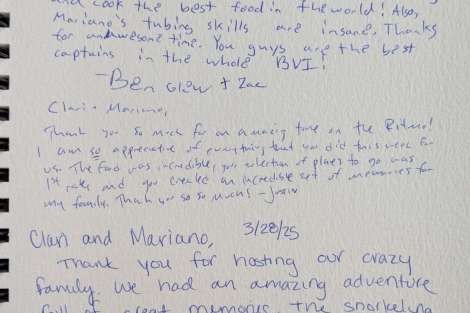 and cook the best food in the world! Also,
Mariano's tubing skills are insane. Thanks
for an awesome time. You guys are the best
captains in the whole BVI!
-Ben Glew + Zac
Clari + Mariano,
Thank you so much for an amazing time on the Ritmo!
I am so appreciative of everything that you did this week for
us. The food was incredible, your selection of places to go was
1st rate and you created an incredible set of memories for
my family. Thank you so so much! - Justin
Clari and Mariano, 3/28/25
Thank you for hosting our crazy
family. We had an amazing adventure
full of great memories. The snorkeling